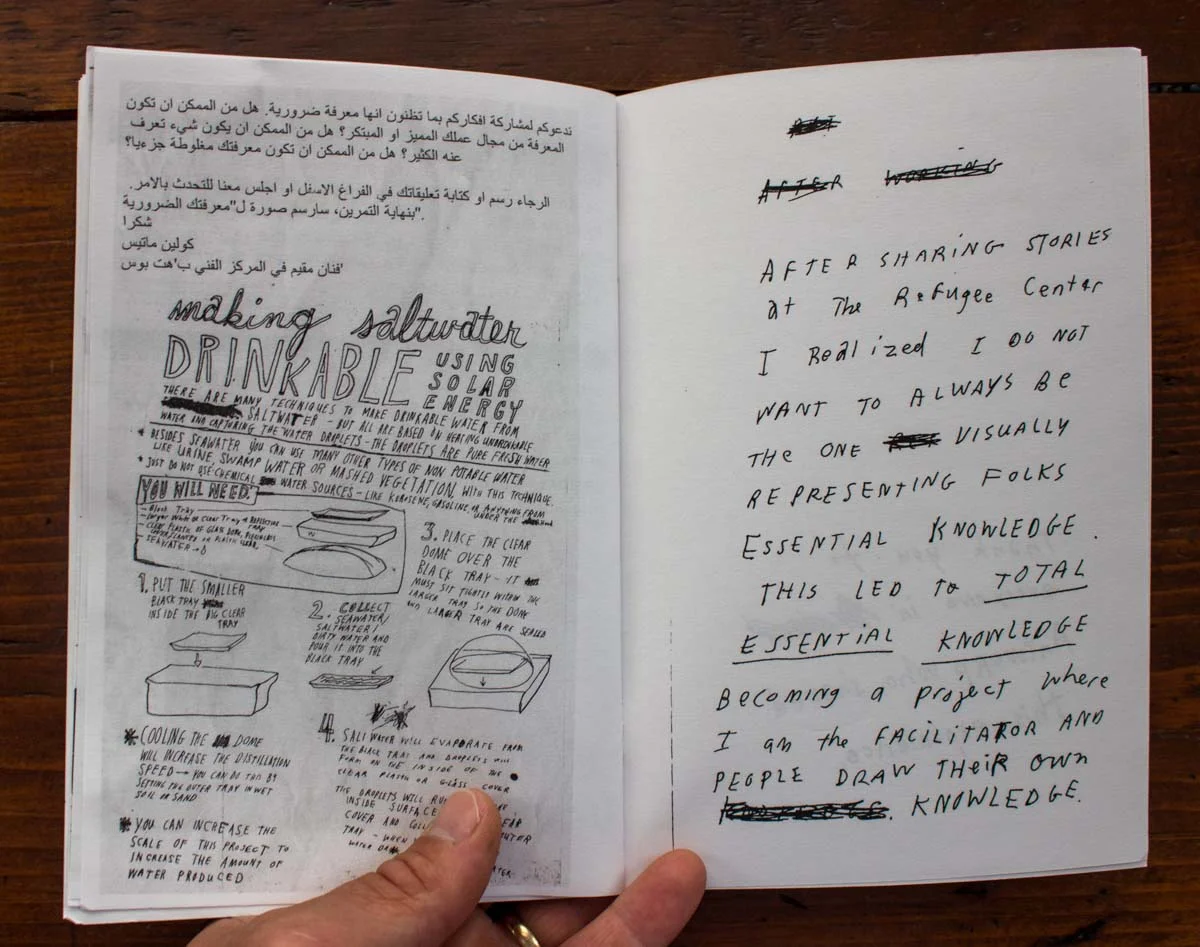 ندعوكم لمشاركة افكاركم بما تظنون انها معرفة ضرورية. هل من الممكن ان تكون
المعرفة من مجال عملك المميز او المبتكر؟ هل من الممكن ان يكون شيء تعرف
عنه الكثير؟ هل من الممكن ان تكون معرفتك مغلوطة جزءيا؟
الرجاء رسم او كتابة تعليقاتك في الفراغ الاسفل او اجلس معنا للتحدث بالامر.
"بنهاية التمرين، سارسم صورة ل"معرفتك الضرورية.
شكرا
كولين ماتيس
فنان مقيم في المركز الفني ب'هت بوس'
making saltwater
DRINKABLE USING
SOLAR
ENERGY
THERE ARE MANY TECHNIQUES TO MAKE DRINKABLE WATER FROM
SALTWATER - BUT ALL ARE BASED ON HEATING UNDRINKABLE
WATER AND CAPTURING THE WATER DROPLETS - THE DROPLETS ARE PURE FRESH WATER
* BESIDES SEAWATER YOU CAN USE MANY OTHER TYPES OF NON POTABLE WATER
LIKE URINE, SWAMP WATER OR MASHED VEGETATION WITH THIS TECHNIQUE.
* JUST DO NOT USE CHEMICAL WATER SOURCES - LIKE KEROSENE, GASOLINE, OR ANYTHING FROM
UNDER THE
YOU WILL NEED:
- Black Tray
- Larger White or Clear Tray
- CLEAR PLASTIC OR GLASS DOME,
SEAWATER
1. PUT THE SMALLER
BLACK TRAY
INSIDE THE BIG CLEAR
TRAY
2. COLLECT
SEAWATER/
SALTWATER/
DIRTY WATER AND
POUR IT INTO THE
BLACK TRAY
3. PLACE THE CLEAR
DOME OVER THE
BLACK TRAY - IT
MUST SIT TIGHTLY WITHIN THE
LARGER TRAY SO THE DOME
AND LARGER TRAY ARE SEALED
4. SALT WATER WILL EVAPORATE FROM
THE BLACK TRAY AND DROPLETS WILL
FORM ON THE INSIDE OF THE
CLEAR PLASTIC OR GLASS COVER
THE DROPLETS WILL
INSIDE SURFACE
COVER AND
TRAY - WHEN
WATER
* COOLING THE DOME
WILL INCREASE THE DISTILLATION
SPEED → YOU CAN DO THIS BY
SETTING THE OUTER TRAY IN WET
SOIL OR SAND
* YOU CAN INCREASE THE
SCALE OF THIS PROJECT TO
INCREASE THE AMOUNT OF
WATER PRODUCED
AFTER WORKING
AFTER SHARING STORIES
at The Refugee Center
I Realized I DO NOT
WANT TO ALWAYS Be
THe ONE VISUALLY
REPRESENTING FOLKS
ESSENTIAL KNOWLEDGE.
THIS LED to TOTAL
ESSENTIAL KNOWLEDGE
Becoming a project where
I am the FACILITATOR AND
PEOPLE DRAW THEIR OWN
KNOWLEDGE.